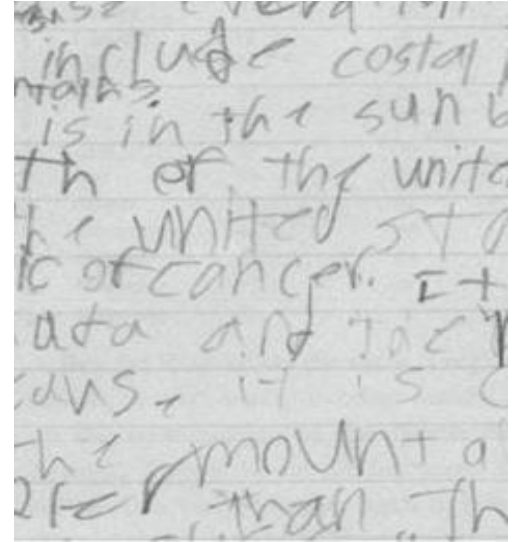 include costal
is in the sun b
th of the unite
he united sta
ic of cancer. It
and the
caus. e it is c
the mounta
than th